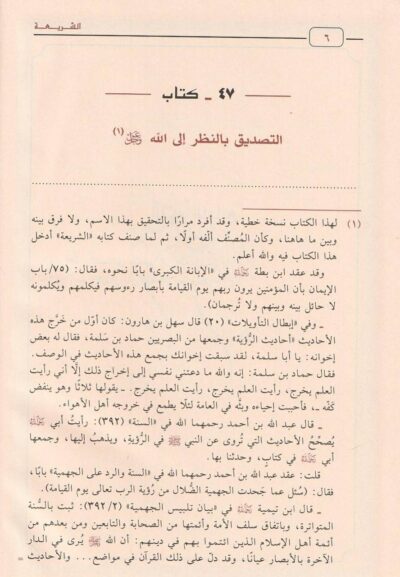 ٦
الشريعة
٤٧ - كتاب
التصديق بالنظر إلى الله ﷻ (١)
(١) لهذا الكتاب نسخة خطية، وقد أفرد مرارًا بالتحقيق بهذا الاسم، ولا فرق بينه
وبين ما هاهنا، وكأن المُصنِّف ألَّفه أولًا، ثم لما صنف كتابه «الشريعة» أدخل
هذا الكتاب فيه والله أعلم.
وقد عقد ابن بطة رحمه الله في «الإبانة الكبرى» بابًا نحوه، فقال: (٧٥/باب
الإيمان بأن المؤمنين يرون ربهم يوم القيامة بأبصار رءوسهم فيكلمهم ويُكلمونه
لا حائل بينه وبينهم ولا تُرجمان).
ـ وفي «إبطال التأويلات» (٢٠) قال سهل بن هارون: كان أوّل من خَرَّج هذه
الأحاديث «أحاديث الرُّؤية» وجمعها من البصريين حماد بن سَلمة، فقال له بعض
إخوانه: يا أبا سلمة، لقد سبقت إخوانك بجمع هذه الأحاديث في الوصف.
فقال حماد بن سلمة: إنه والله ما دعتني نفسي إلى إخراج ذلك إلَّا أني رأيت
العلم يخرج، رأيت العلم يخرج، رأيت العلم يخرج. ـ يقولها ثلاثًا وهو ينفض
كفّه ـ، فأحببت إحياءه وبثَّه في العامة لئلَّا يطمع في خروجه أهل الأهواء.
ـ قال عبد الله بن أحمد رحمهما الله في «السنة» (٣٩٢): رأيتُ أبي رحمه الله
يُصحِّحُ الأحاديث التي تُروى عن النبي ﷺ في الرُّؤية، ويذهبُ إليها، وجمعها
أبي رحمه الله في كتابٍ، وحدثنا بها.
قلت: عقد عبد الله بن أحمد رحمهما الله في «السنة والرد على الجهمية» بابًا،
فقال: (سُئل عما جَحدت الجهمية الضُّلال من رُؤية الرب تعالى يوم القيامة).
ـ قال ابن تيمية رحمه الله في «بيان تلبيس الجهمية» (٣٩٢/٢): ثبت بالسُّنة
المتواترة، وباتفاق سلف الأمة وأئمتها من الصحابة والتابعين ومن بعدهم من
أئمة أهل الإسلام الذين ائتموا بهم في دينهم: أن الله ﷻ يُرى في الدار
الآخرة بالأبصار عيانًا، وقد دلَّ على ذلك القرآن في مواضع... والأحاديث =